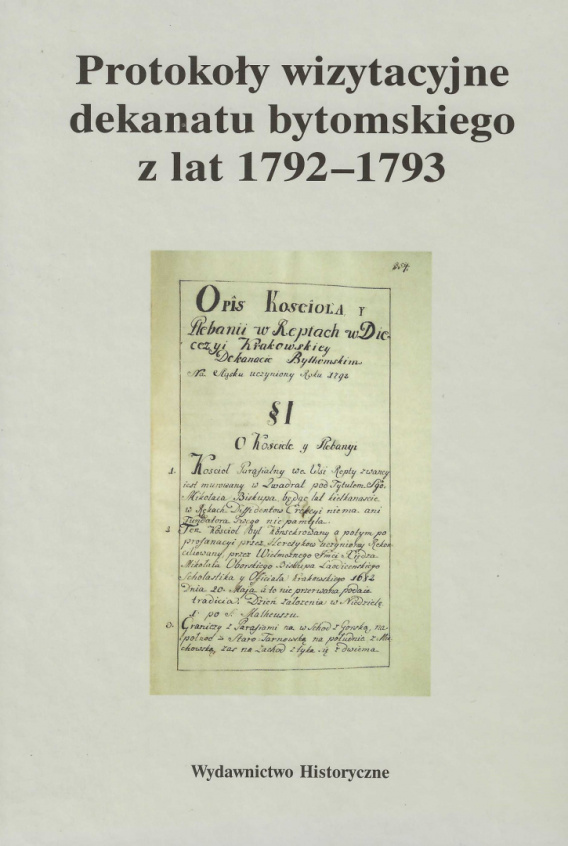 Protokoły wizytacyjne
dekanatu bytomskiego
z lat 1792–1793
259.
Opis Koscioła y
Plebanii w Reptach w Die-
cezyi Krakowskiey
Dekanacie Bythomskim
Na Sląsku uczyniony Roku 1792
§ I
O Kosciele y Plebanyi
1. Koscioł Parafialny we Wsi Repty zwaney
iest murowany w Quadrat pod Tytułem Sgo.
Mikołaia Biskupa, będąc lat kielkanascie
w Rękach Diffidentow Erekcyi niema ani
Fundatora swego nie pamięta.
2. Ten Kościoł był konsekrowany a potym po
profanacyi przez Heretykow uczynioney Rekon-
cilowany przez Wielmożnego Imci Xiędza
Mikołaia Oborskiego Biskupa Laodicenskiego
Scholastika y Officiała Krakowskiego 1642
Dnia 20. Maja a to nie przerwana podaie
tradicia. Dzien założenia w Niedzielę
1. po S. Matheuszu
3. Graniczy z Parafiami na wschod z Gorską, na
połnoc z Staro Tarnowską na południe z Mie-
chowską, zas na zachod styka się z dwiema
Wydawnictwo Historyczne